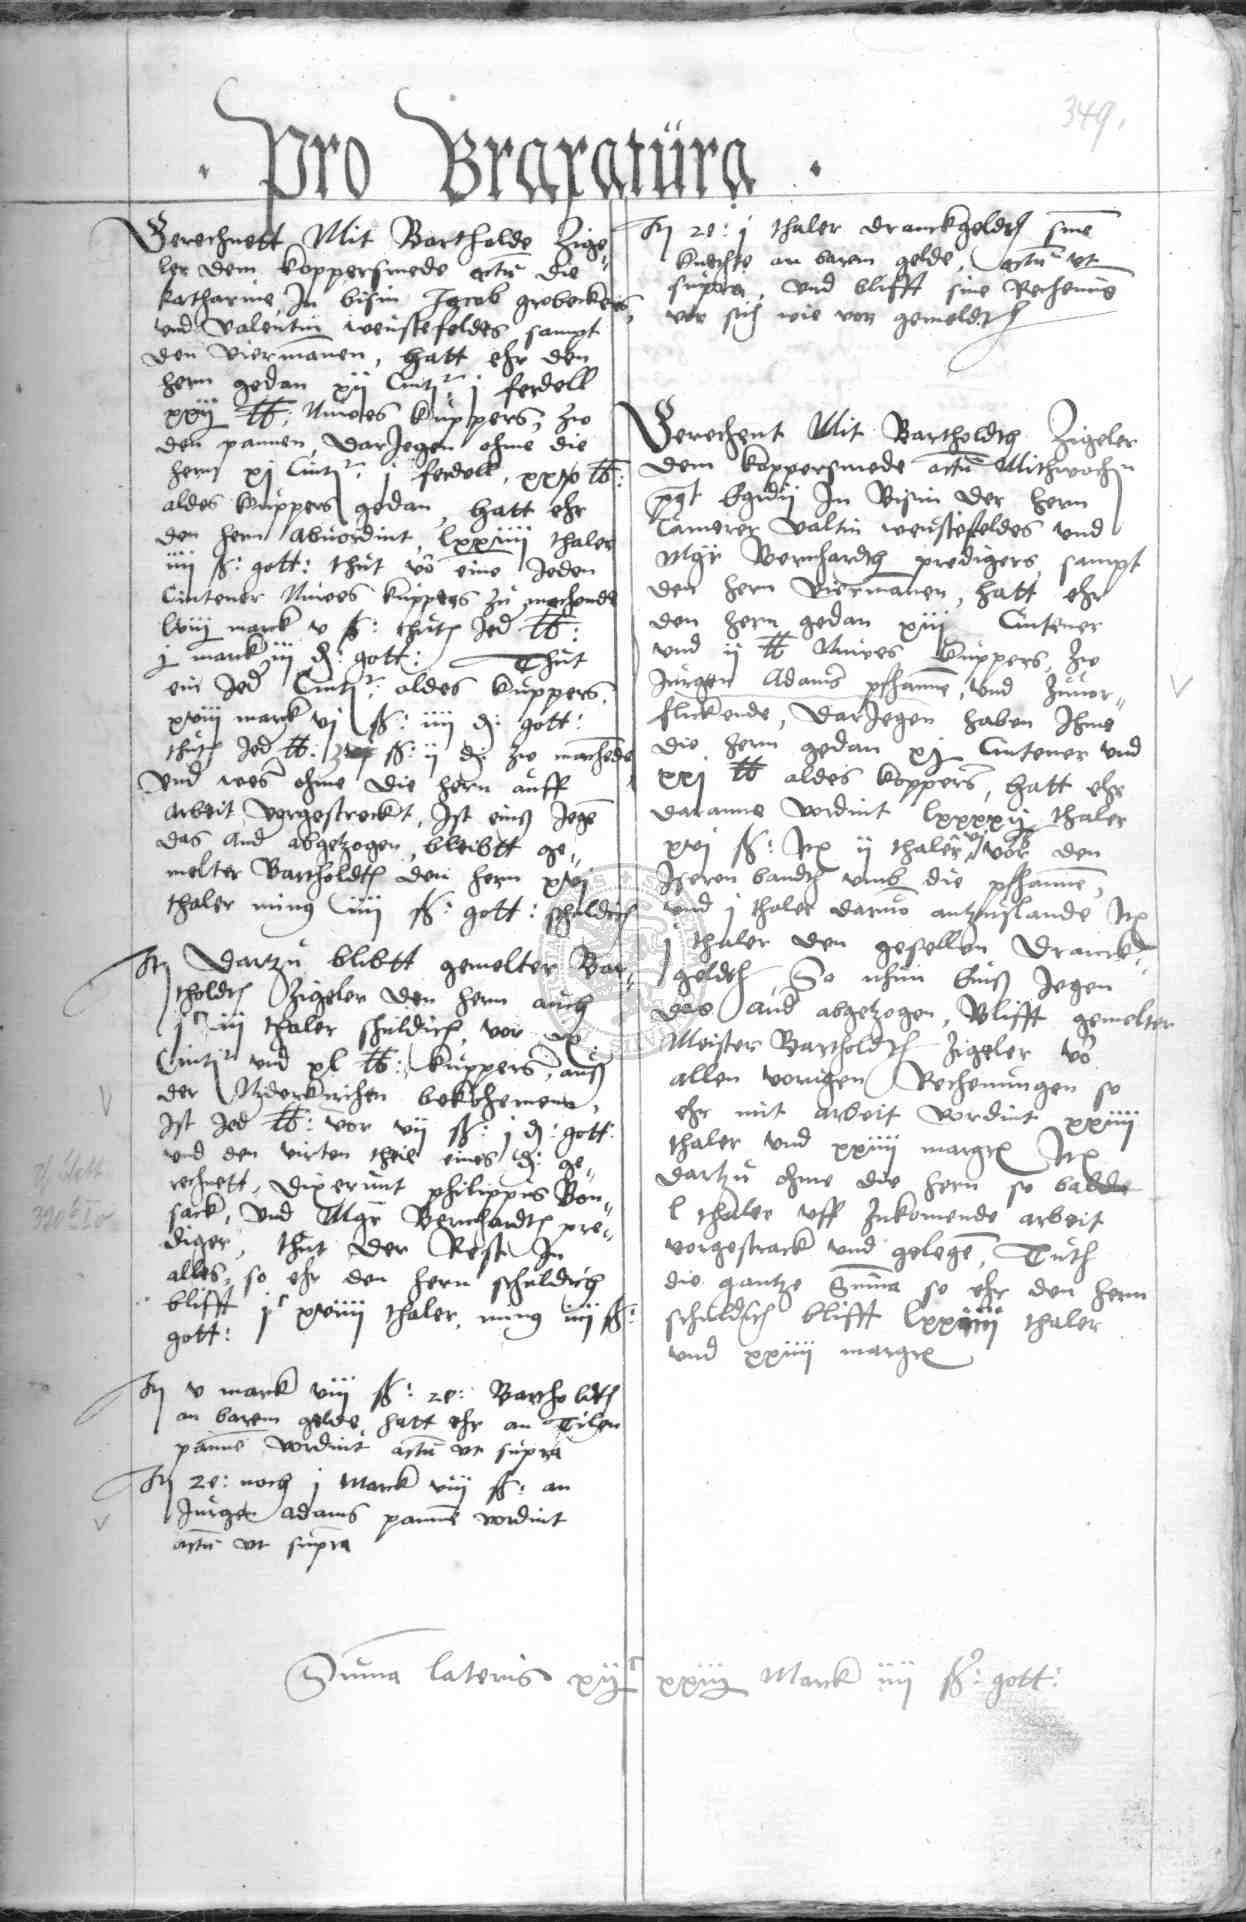 349.
Pro Braxatüra
Gerechnett Mit Bartholde Zige-
ler dem koppersmede actū die
katharine, In bisin Jacob grobeckers,
vnd Valentin weustefeldes sampt
den Viermānen, Hatt ehr den
hern gedan xij Cint j ferdell
xxiij lb: Nuwes kuppers, zw
den pannen, Dar Jegen ohme die
hern xj Cint j ferdell, xxv lb:
aldes kuppers gedan, Hatt ehr
den hern Abuordint, lxxiiii thaler
iiii ß: gott: thut vō eine Jeden
Cintener Nuwes kuppers zu machende
lviii marck v ß: thut Jed lb:
j marck iii d: gott: Thut
ein Jed Cint: aldes kuppers,
xviii marck vj ß: iiii d: gott:
thut Jed lb: ß: ii d: zw machēde
Vnd wes ohme die hern auff
arbeit vorgestreckt, Ist eins Jegē
das And abgetzogen, bleibtt ge-
melter Bartholdt den hern xvj
thaler ming iiii ß: gott: schuldich
It Dartzu blibtt gemelter Bar-
tholdt Zigeler den hern auch
jc iii thaler schuldich, vor ix
Cint vnd xl lb: kuppers, auß
der Niderkirchen bekohemen,
Ist Jed lb: vor vij ß: j d: gott:
vnd den virten theil eines d: ge-
rechnett, dixerunt philippus Bon-
sack, Vnd Mgr Bernhardt pre-
diger, thut der Rest In
alles, so ehr den hern schuldich
blifft jc xviiii thaler, ming iiii ß:
gott:
It v marck viii ß: 2e: Bartholdt
an barem gelde hatt ehr an Tilen
pannē vordint actū vt supra
It 2e: noch j Marck viii ß: an
Jurgen adams pannē vordint
actū vt supra
It 2e: j thaler dranckgeldt sinē
knechte an barem gelde, actū vt
supra, Vnd blifft sine Rechenung
vor sich wie von gemeldt
Gerechent Mit Bartholdt Zigeler
dem koppersmede actū Mithwochn
pꝰt Egidij In Bisin der hern
Camerer Valtin weustefeldes vnd
Mgr Bernhardt predigers, sampt
den hern Viermānen, Hatt ehr
den hern gedan xiij Cintener
vnd ij lb Nuwes kuppers, zw
Jurgen Adams phannē, Vnd zuuor-
flickende, DarJegen haben Ihme
die hern gedan xj Cintener vnd
xxj lb aldes koppers, Hatt ehr
daranne Vordint lxxxxij thaler
xvj ß: Itz ij thaler vor den
Iseren bandt vmb die phannē,
vnd j thaler daruō antzuslande Itz
j thaler den gesellen Dranck-
geldt, So nhun Eins Jegen
das And abgetzogen, Blifft gemelter
Meister Bartholdt Zigeler vō
allen vorigen Rechenungen so
ehr mit arbeit vordint xxiiii
thaler vnd xxiiii margrx Itz
dartzu ohme die hern so
l thaler vff Inkomende arbeit
vorgestrack vnd gelegē, Tuth
die gantze Suma so ehr den hern
schuldich blifft lxxiiii thaler
vnd xxiiii margrx
Suma lateris xijc xxiij Marck iiii ß: gott: